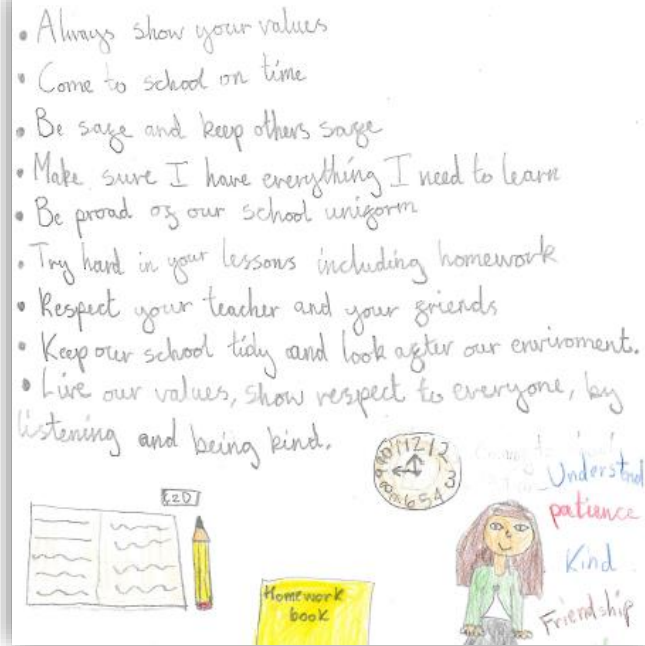 • Always show your values
• Come to school on time
• Be safe and keep others safe
• Make sure I have everything I need to learn
• Be proad of our school uniform
• Try hard in your lessons including homework
• Respect your teacher and your friends
• Keep our school tidy and look after our enviroment.
• Live our values, show respect to everyone, by
listening and being kind.
Understand
patience
Kind
Friendship
Homework
book